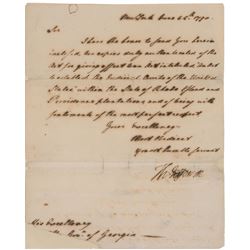 New York June 26th. 1790.
Sir
I have the honor to send you herein
two copies duly authenticated of the
Act for giving effect to an Act intituled,
to establish the Judicial Courts of the United
States within the State of Rhode Island and
Providence plantations, and of being with
sentiments of the most perfect respect
Your Excellency's
Most Obedient
and most humble servant
His Excellency
Gov. of Georgia